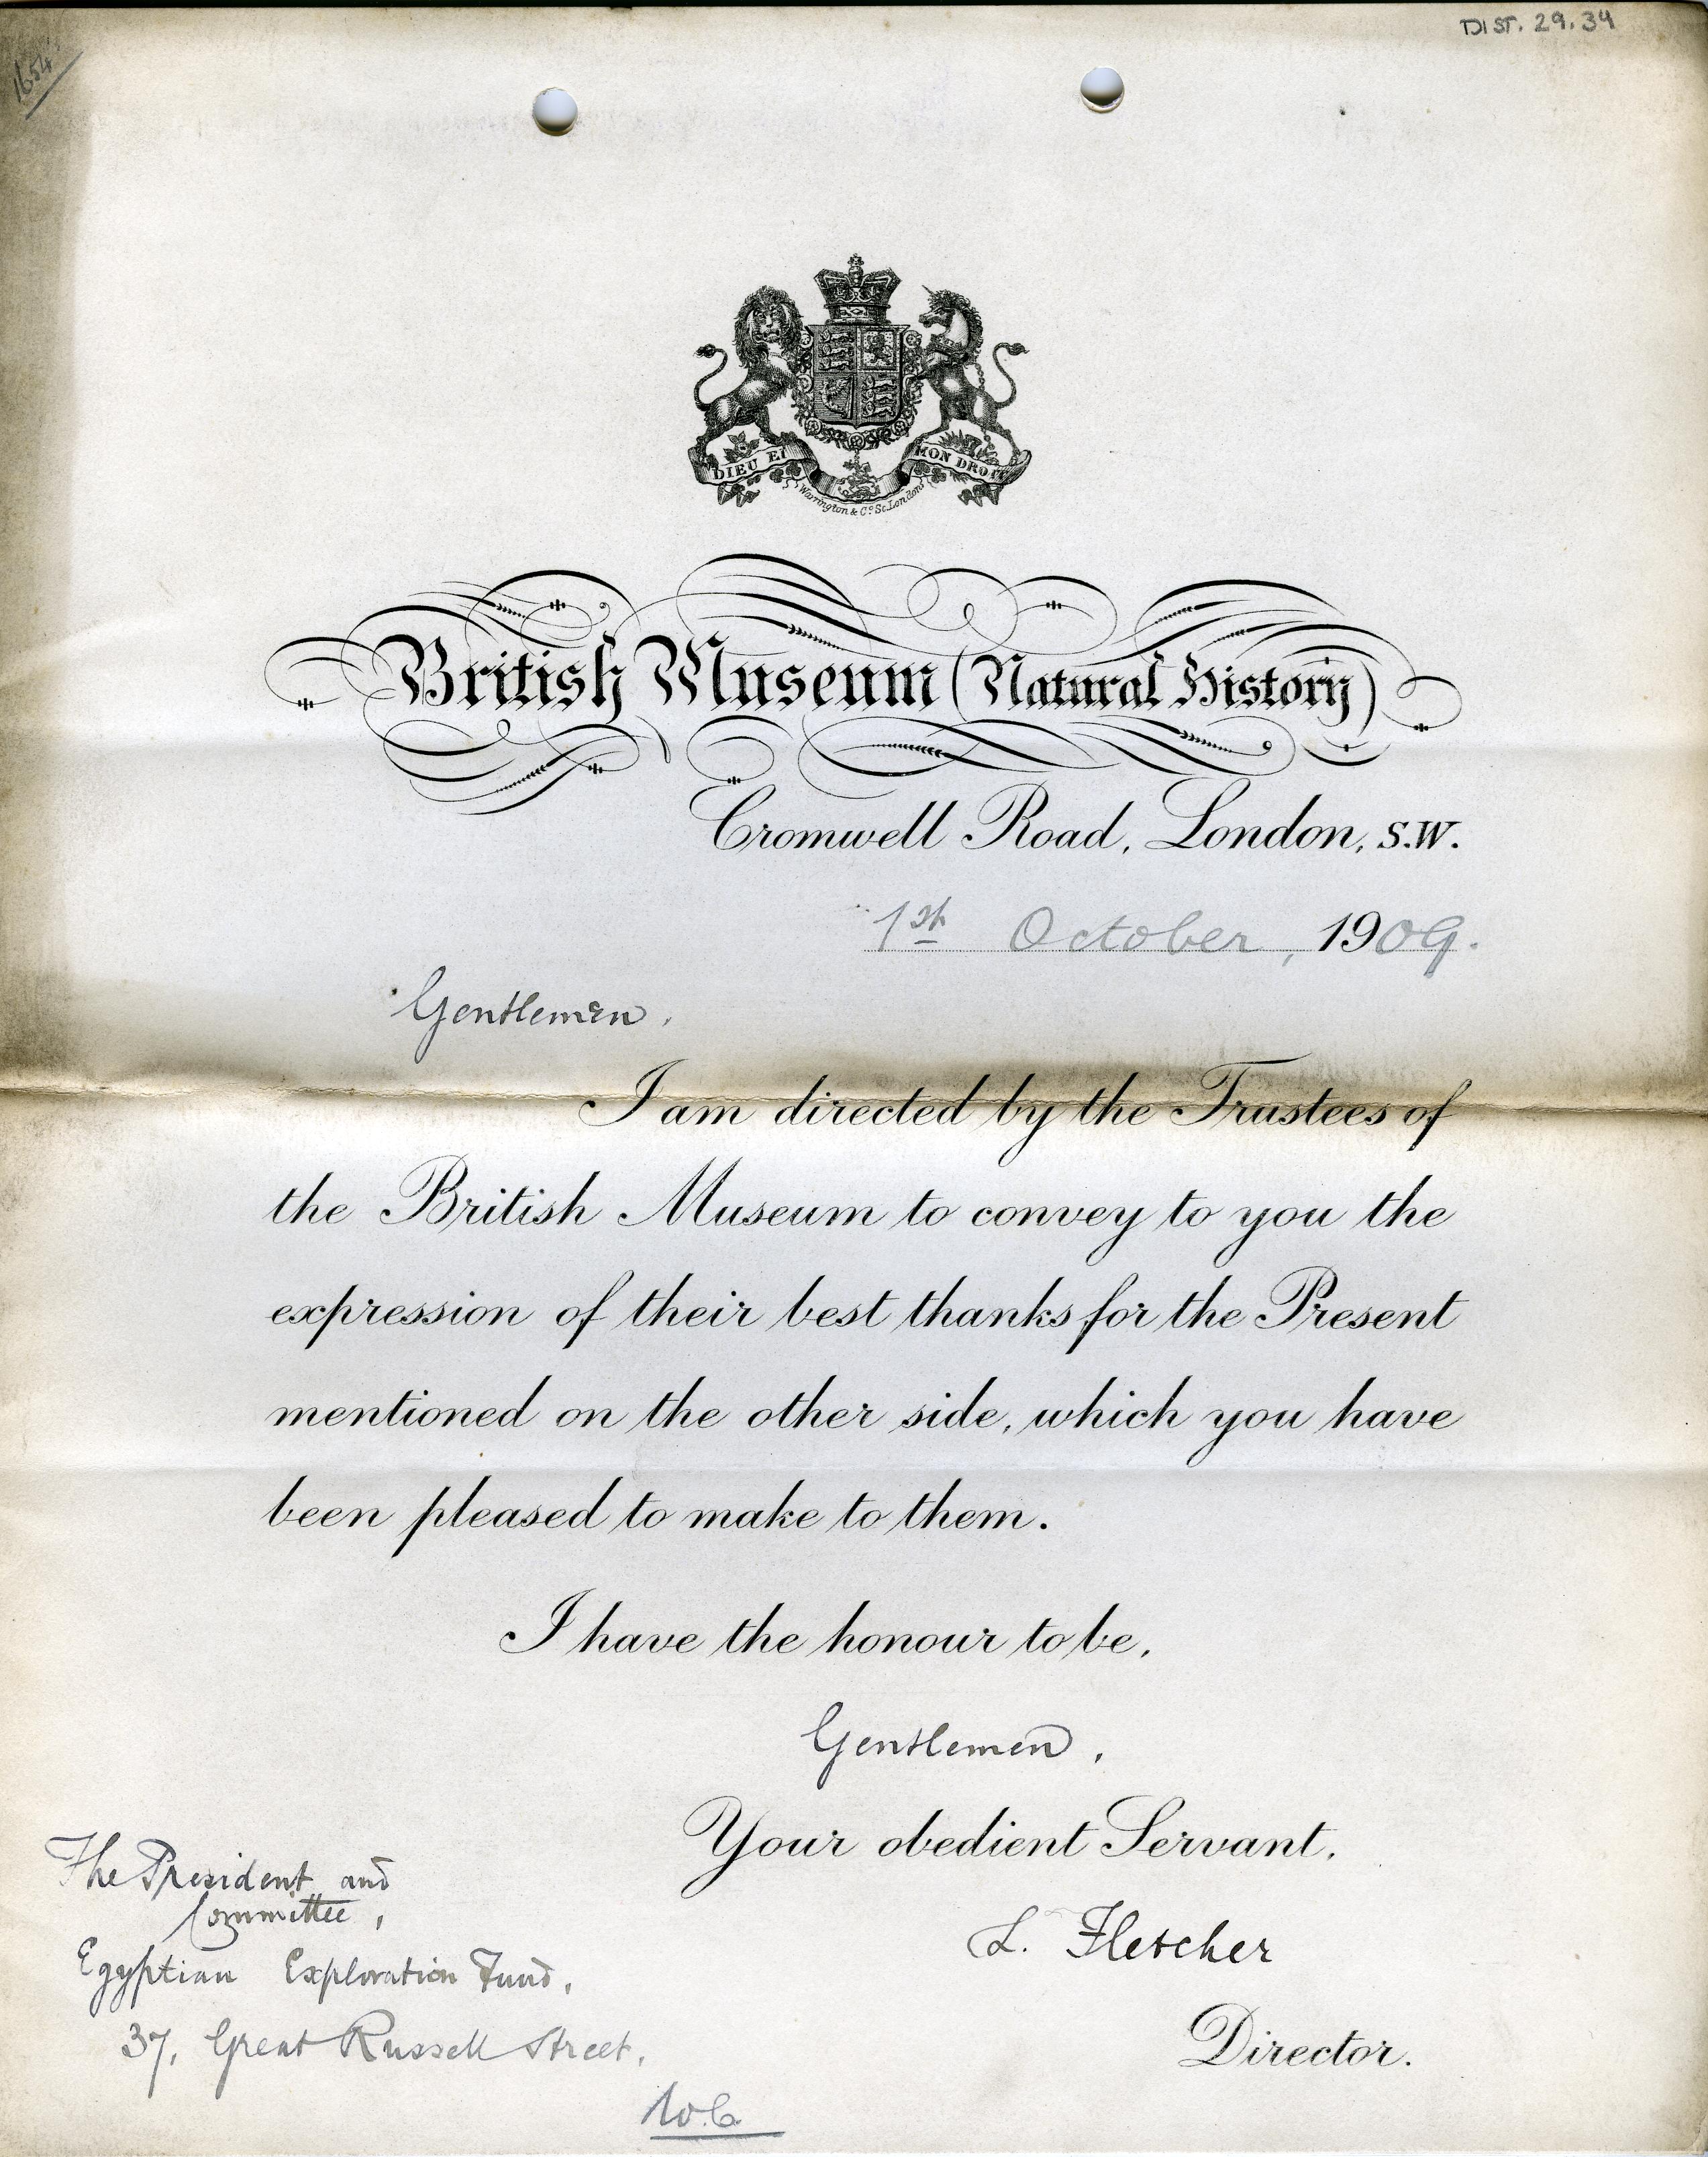 DIST. 29.34
1654
DIEU ET MON DROIT
Warrington & Co. St. London
British Museum (Natural History)
Cromwell Road, London, S.W.
1st October, 1909.
Gentlemen,
I am directed by the Trustees of
the British Museum to convey to you the
expression of their best thanks for the Present
mentioned on the other side, which you have
been pleased to make to them.
I have the honour to be,
Gentlemen,
Your obedient Servant,
L. Fletcher
Director.
The President and
Committee,
Egyptian Exploration Fund,
37, Great Russell Street,
W.C.